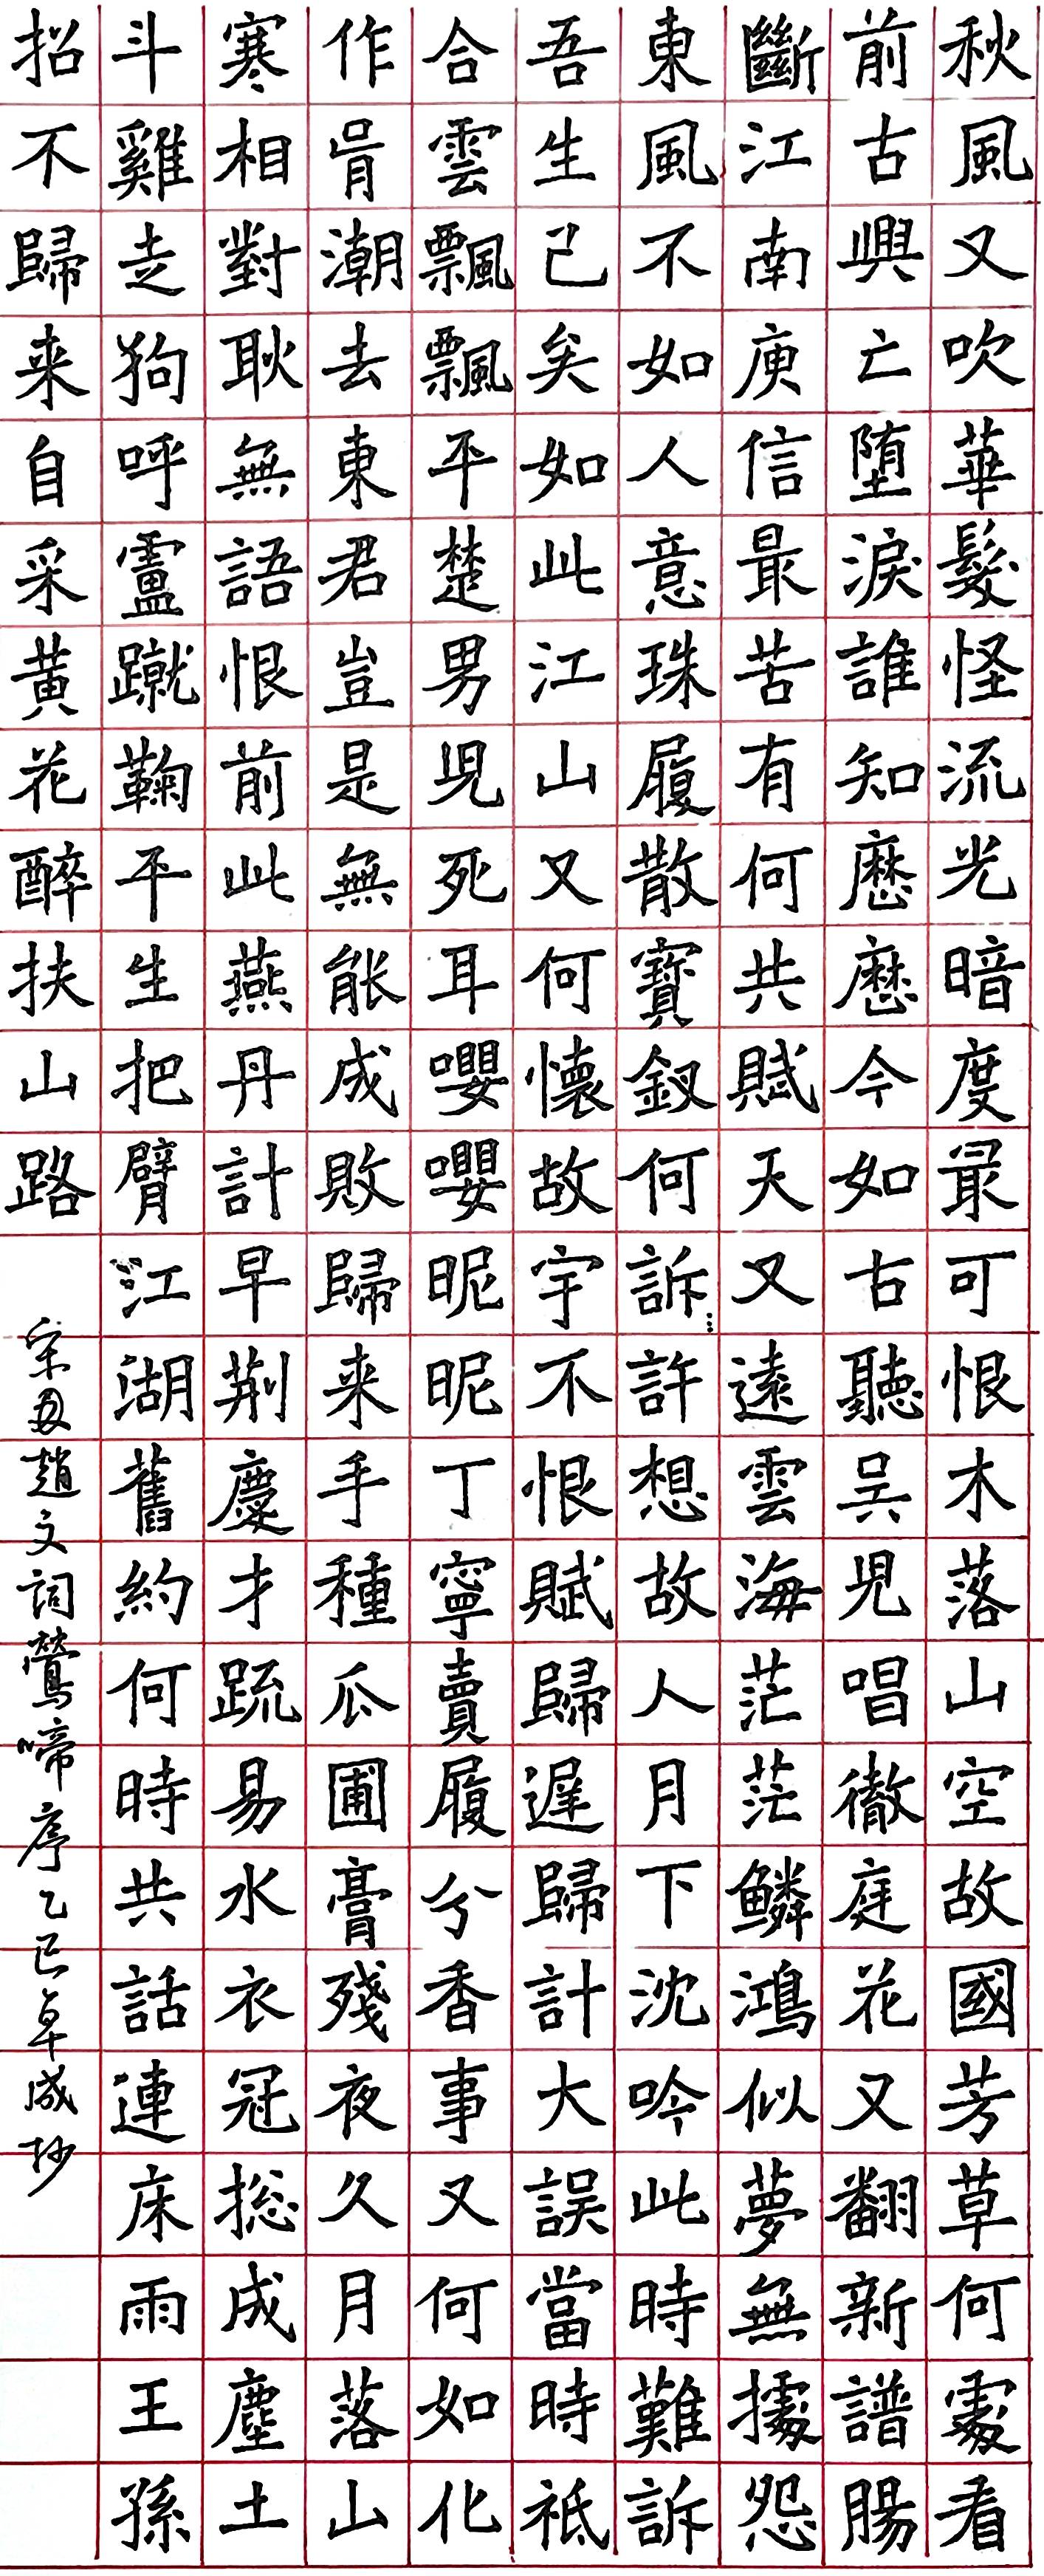 秋風又吹華髮怪流光暗度最可恨木落山空故國芳草何處看
前古興亡堕淚誰知歷歷今如古聽吳兒唱徹庭花又翻新譜腸
斷江南庾信最苦有何共賦天又遠雲海茫茫鱗鴻似夢無據怨
東風不如人意珠履散寶釵何訴許想故人月下沈吟此時難訴
吾生己矣如此江山又何懷故宇不恨賦歸遲歸計大誤當時祗
合雲飄飄平楚男兒死耳嚶嚶昵昵丁寧賣履兮香事又何如化
作胥潮去東君豈是無能成敗歸来手種瓜圃膏殘夜久月落山
寒相對耿無語恨前此燕丹計早荆慶才疏易水衣冠捴成塵土
斗雞走狗呼盧蹴鞠平生把臂江湖舊約何時共話連床雨王孫
招不歸来自采黄花醉扶山路
宋趙文詞鶯啼序乙巳卓成抄